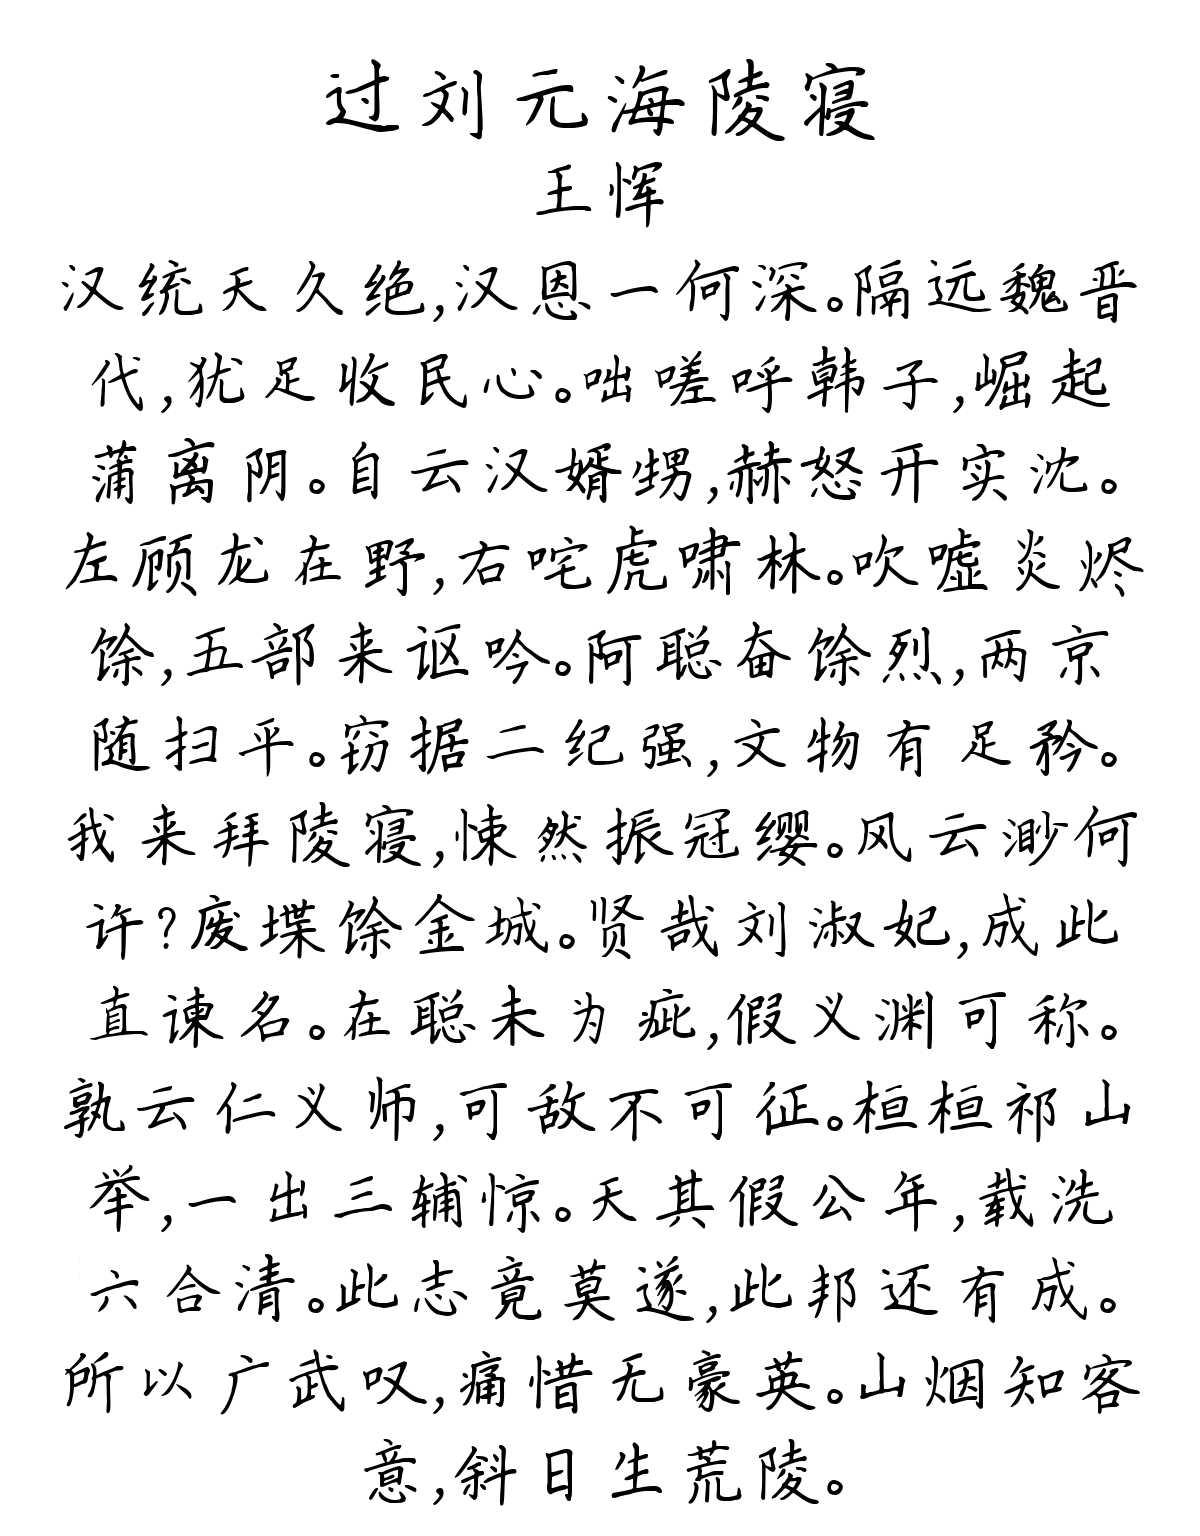 过刘元海陵寝
王恽
汉统天久绝,汉恩一何深。隔远魏晋
代,犹足收民心。咄嗟呼韩子,崛起
蒲离阴。自云汉婿甥,赫怒开实沈。
左顾龙在野,右咤虎啸林。吹嘘炎烬
馀,五部来讴吟。阿聪奋馀烈,两京
随扫平。窃据二纪强,文物有足矜。
我来拜陵寝,悚然振冠缨。风云渺何
许?废堞馀金城。贤哉刘淑妃,成此
直谏名。在聪未为疵,假义渊可称。
孰云仁义师,可敌不可征。桓桓祁山
举,一出三辅惊。天其假公年,载洗
六合清。此志竟莫遂,此邦还有成。
所以广武叹,痛惜无豪英。山烟知客
意,斜日生荒陵。